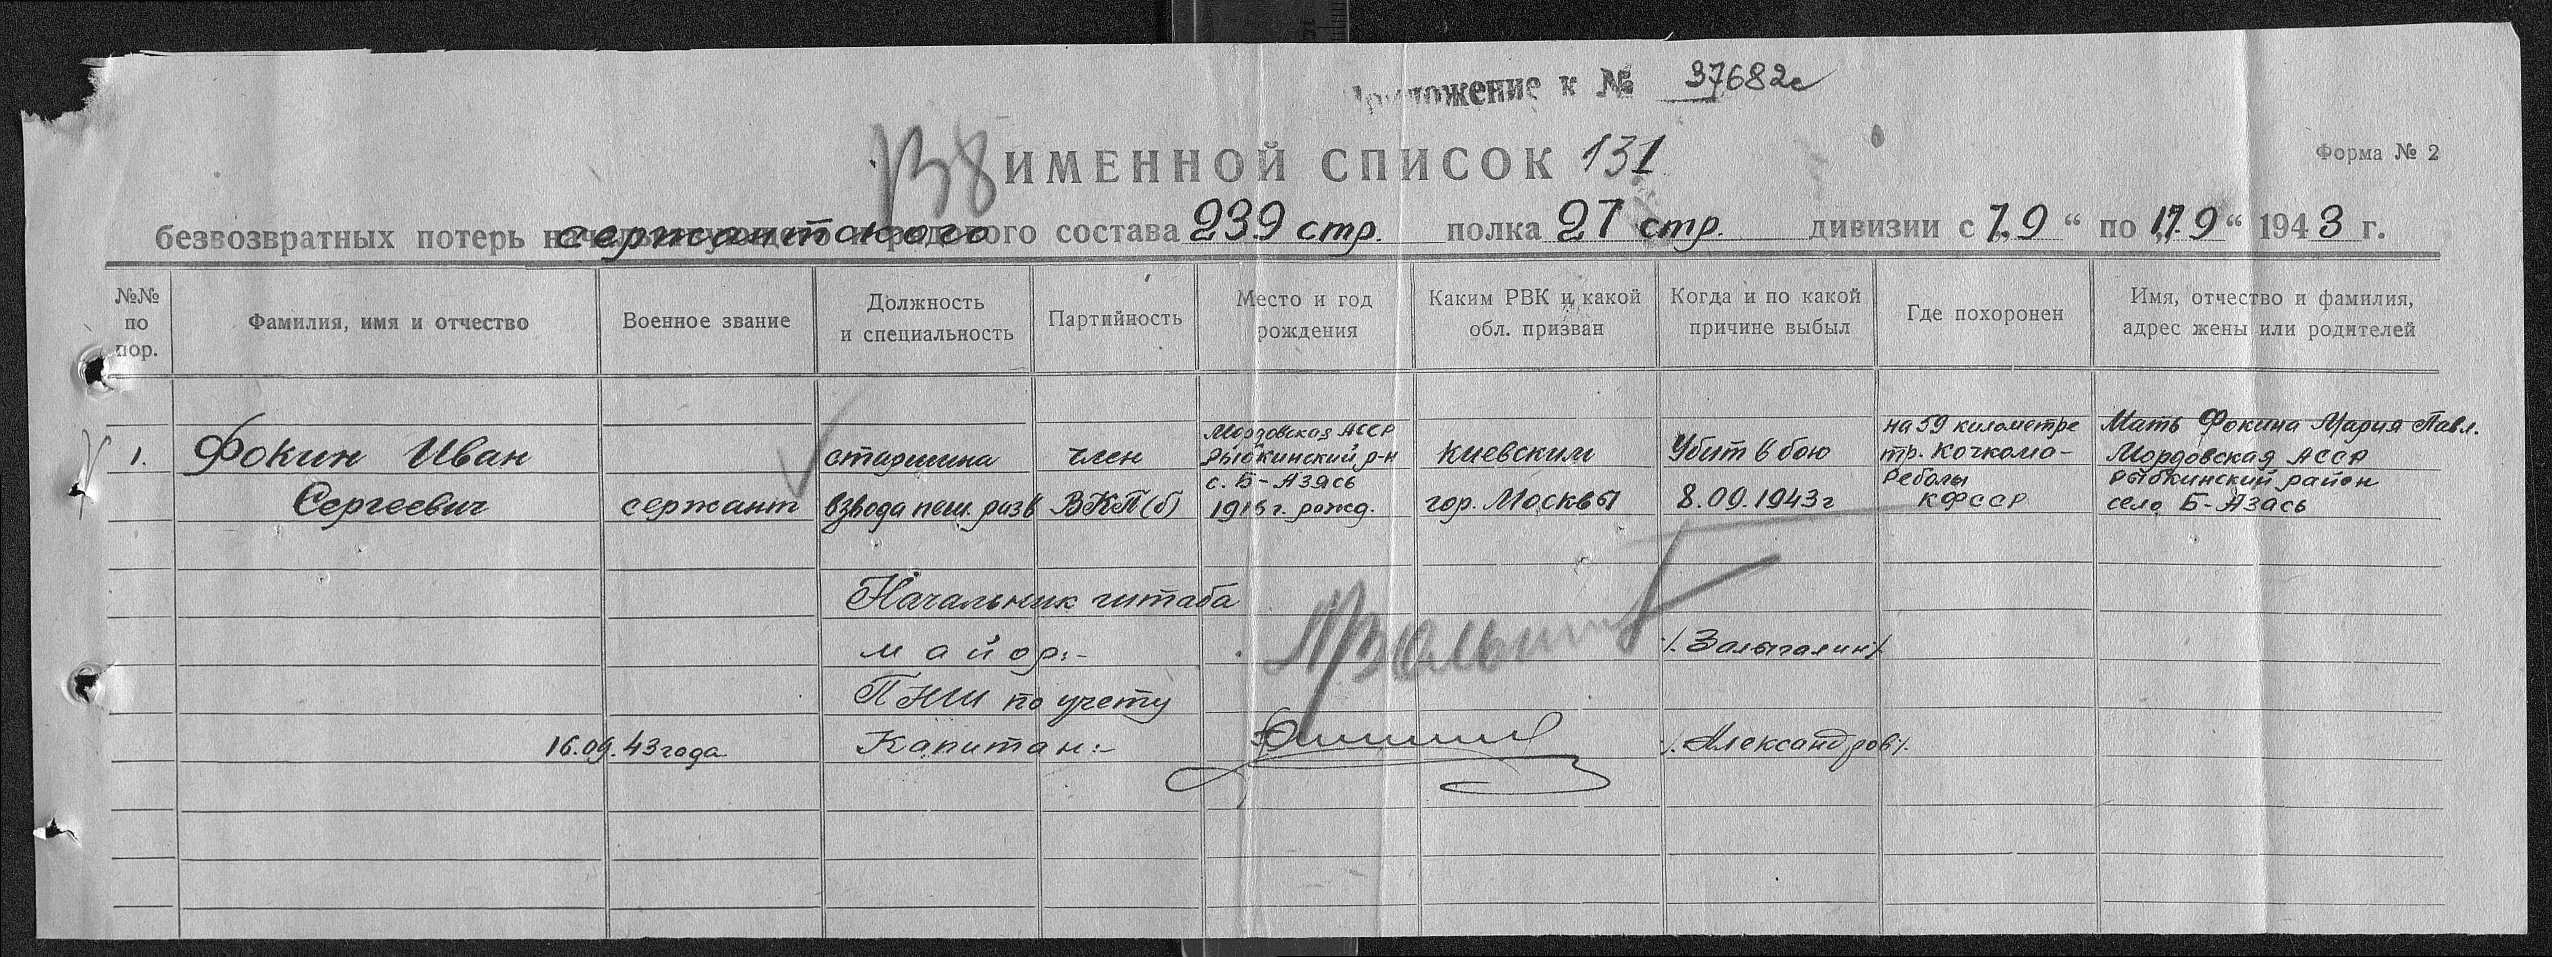 Приложение к № 37682с
ИМЕННОЙ СПИСОК 131
Форма № 2
безвозвратных потерь сержантского состава 239 стр. полка 27 стр. дивизии с 7.9 “ по 17.9 “ 1943 г.
№№ по пор.
Фамилия, имя и отчество
Военное звание
Должность и специальность
Партийность
Место и год рождения
Каким РВК и какой обл. призван
Когда и по какой причине выбыл
Где похоронен
Имя, отчество и фамилия, адрес жены или родителей
1.
Фокин Иван
Сергеевич
сержант
старшина
взвода пеш. разв
член
ВКП(б)
Мордовская АССР
Рыбкинский р-н
с. Б-Азясь
г. рожд.
Киевским
гор. Москвы
Убит в бою
8.09.1943г
на 59 километре
тр. Кочкома-
Реболы
КФССР
Мать Фокина Мария Павл.
Мордовская АССР
Рыбкинский район
село Б-Азясь
Начальник штаба
майор:-
/. Залыгалин/.
ПНШ по учету
16.09.43 года
Капитан:-
/. Александров/.